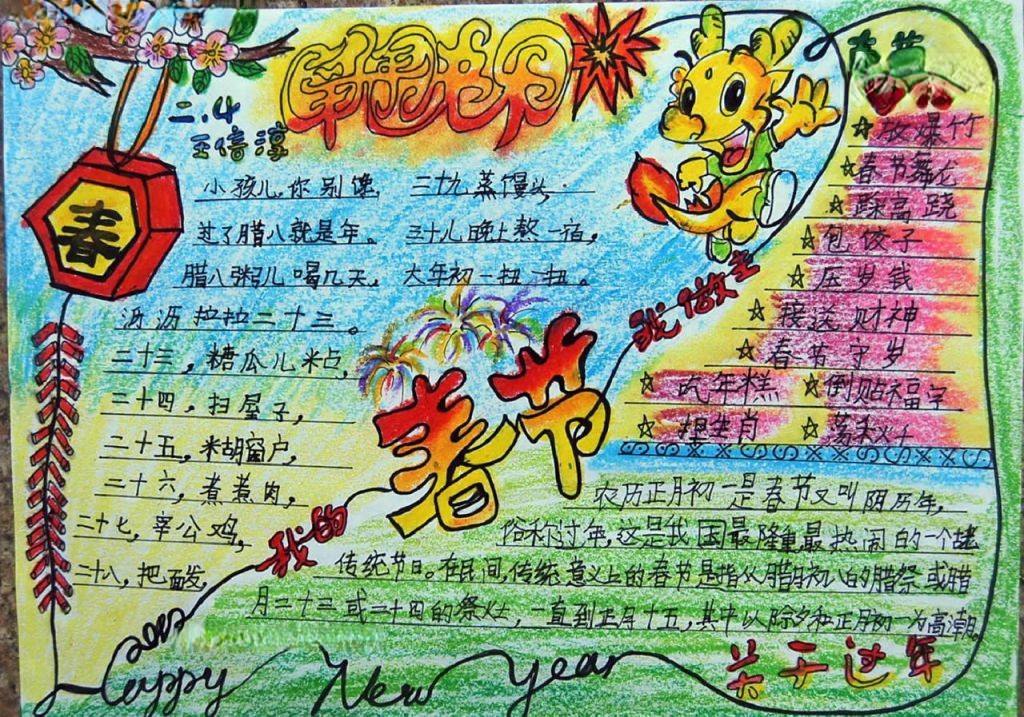 二.4
倍淳
春
小孩儿你别馋
二十九蒸馒头.
过了腊八就是年。
三十儿晚上熬一宿,
腊八粥儿喝几天,
大年初一扭一扭。
沥沥拉拉二十三。
二十三,糖瓜儿米占,
二十四,扫屋子,
二十五,米胡窗户,
二十六,煮煮肉,
二十七,宰公鸡,
二十八,把面发,
我的
春节
我做主
春节
☆放爆竹
☆春节舞龙
☆踩高跷
☆包饺子
☆压岁钱
☆接送财神
☆春节守岁
☆吃年糕 ☆倒贴福字
☆ 生肖 ☆
农历正月初一是春节又叫阴历年,
俗称过年,这是我国最隆重最热闹的一个
传统节日。在民间,传统意义上的春节是指从腊月初八的腊祭或腊
月二十三或二十四的祭灶,一直到正月十五,其中以除夕和正月初一为高潮。
关于过年
2012
Happy New year